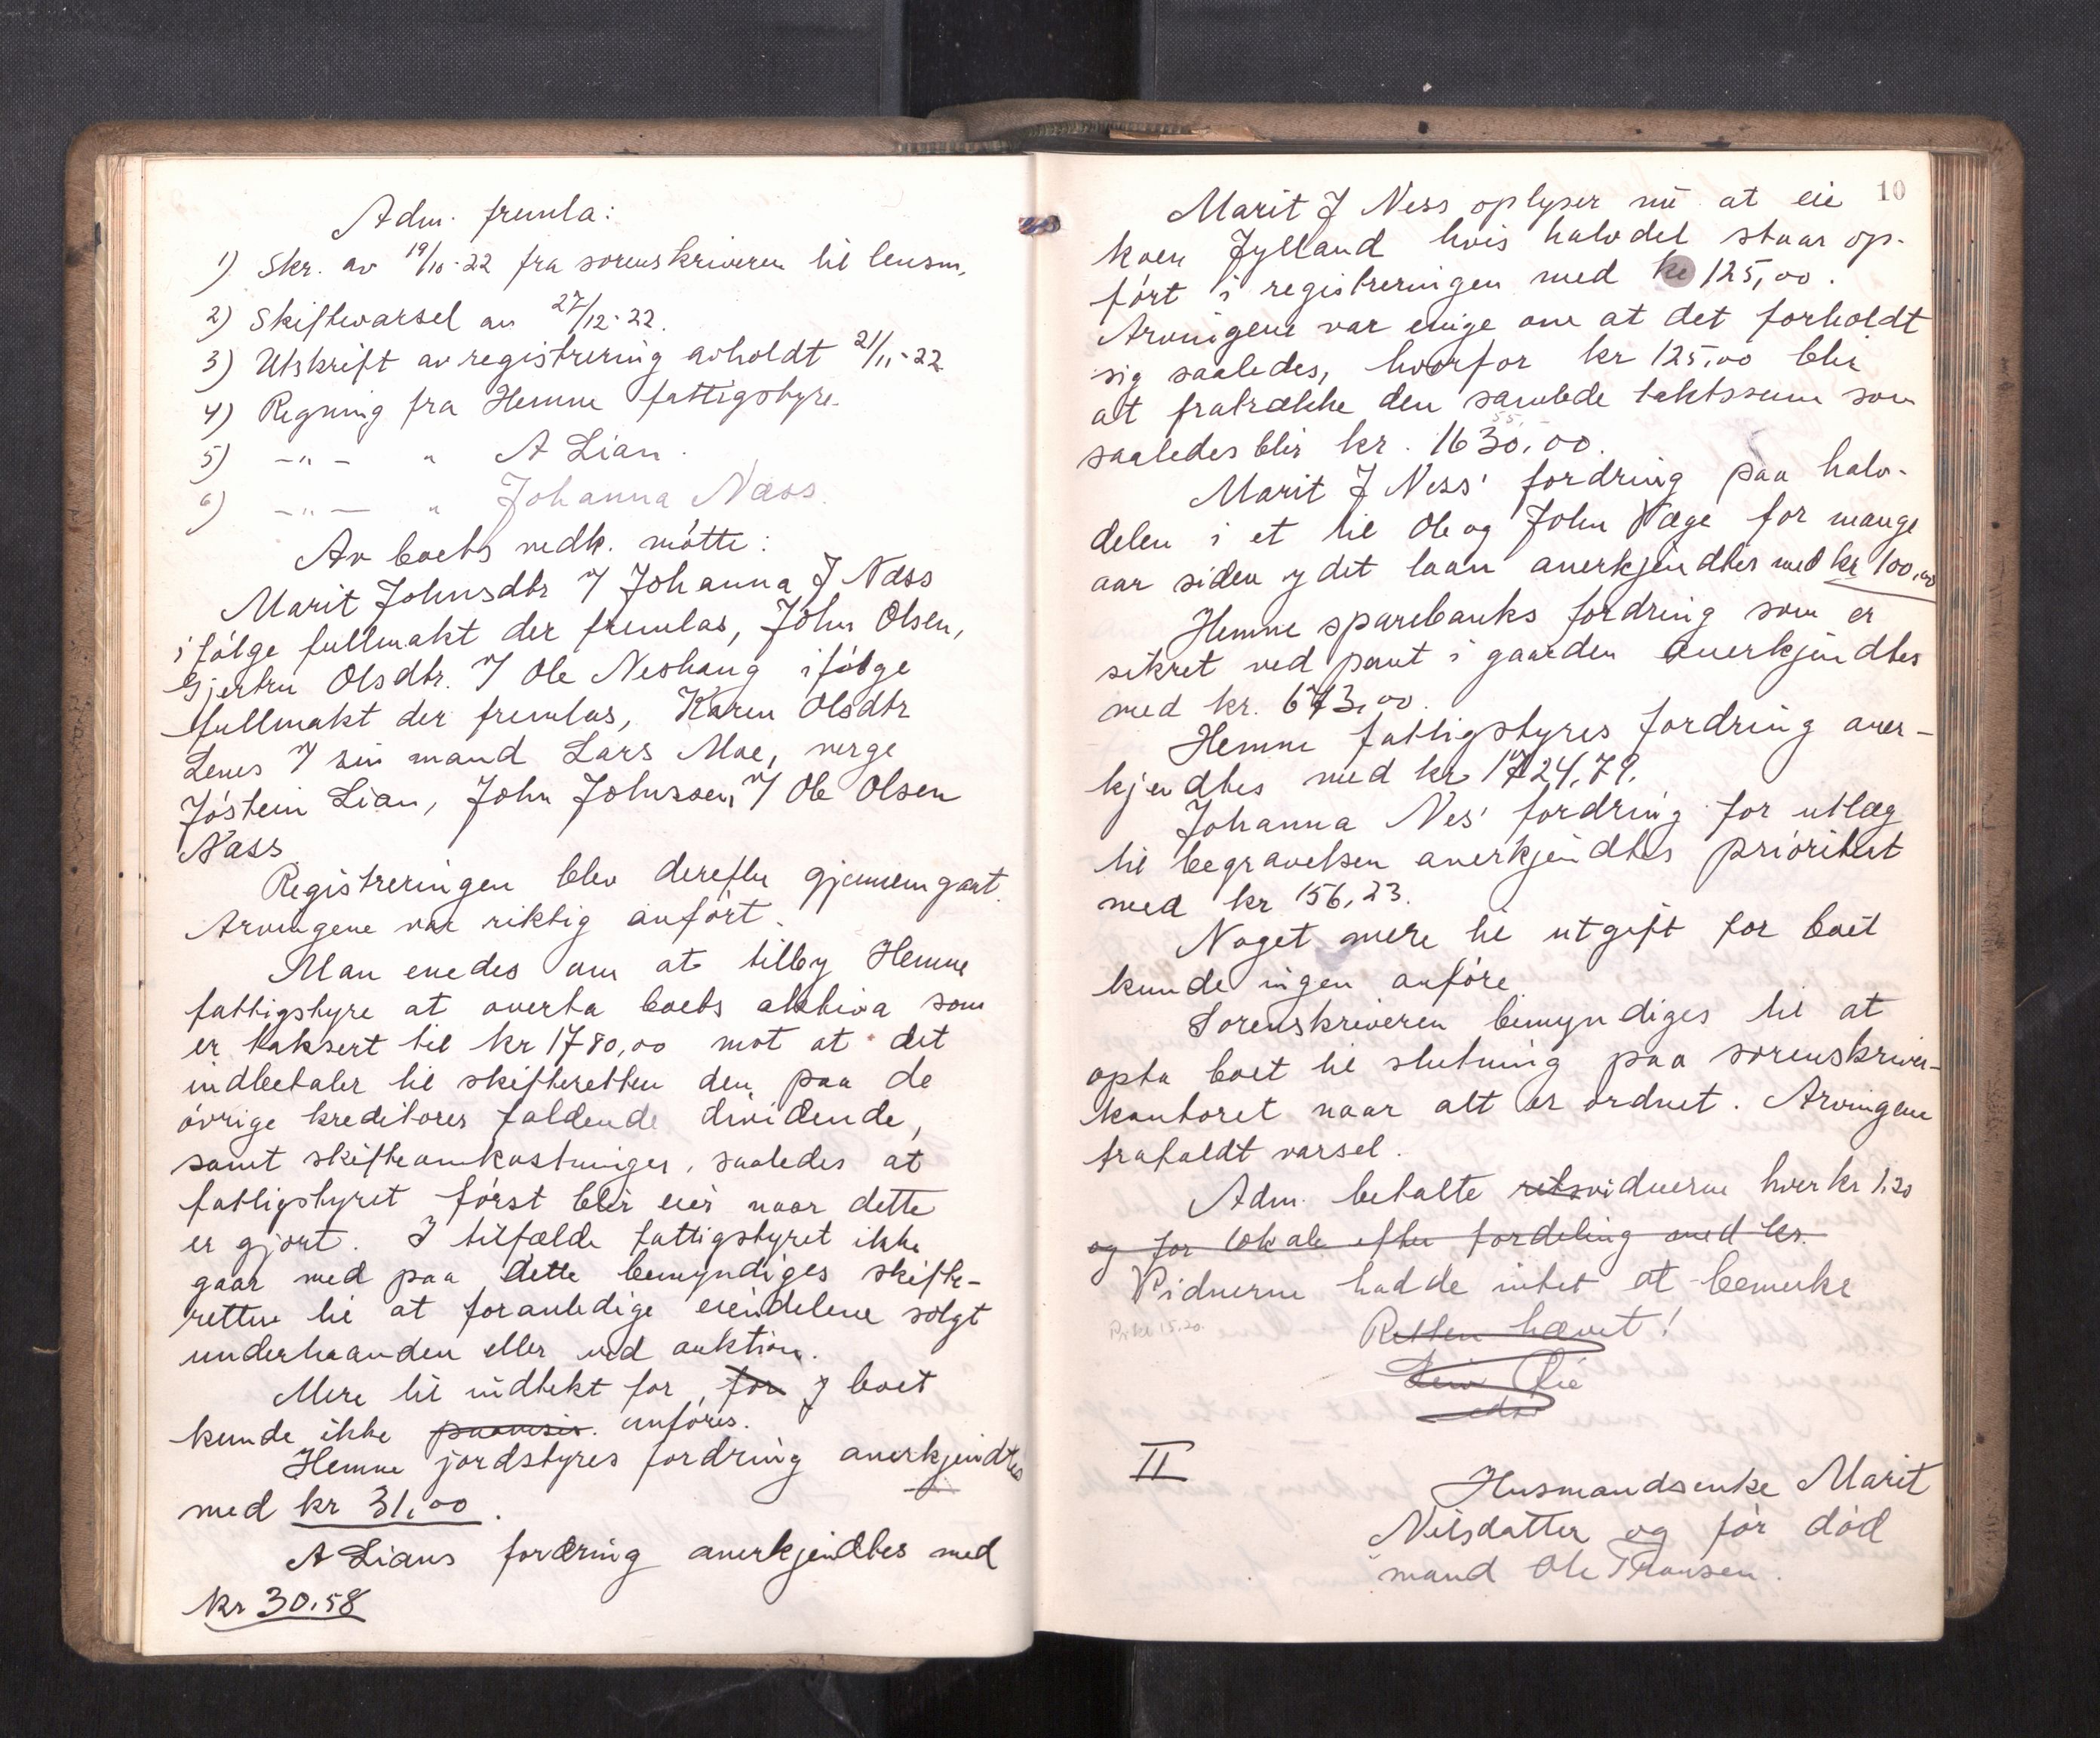 Adm. fremla:
1) Skr. av 19/10-22 fra sorenskriveren til lensm.
2) Skiftevarsel av 27/12-22.
3) Utskrift av registrering avholdt 21/11-22
4) Regning fra Hemne fattigstyre.
5) -"- " A Lian.
6) -"- " Johanna Næss.
Av boets vedk. møtte:
Marit Johnsdtr v/ Johanna J Næss
ifølge fullmakt der fremlas, John Olsen,
Gjertru Olsdtr. v/ Ole Neshaug ifølge
fullmakt der fremlas, Karen Olsdtr
Lenes v/ sin mand Lars Moe, verge
Jøstein Lian, John Johnssen v/ Ole Olsen
Næss
Registreringen blev derefter gjennemgaat.
Arvingene var riktig anført.
Man enedes om at tilby Hemne
fattigstyre at overta boets aktiva som
er taksert til kr 1780,00 mot at det
indbetaler til skifteretten den paa de
øvrige kreditorer faldende dividende,
samt skifteomkostninger, saaledes at
fattigstyret først blir eier naar dette
er gjort. I tilfælde fattigstyret ikke
gaar med paa dette bemyndiges skifte-
retten til at foranledige eiendelene solgt
underhaanden eller ved auktion.
Mere til indtekt for for boet
kunde ikke paavises. anføres.
Hemne jordstyres fordring anerkjendtes
med kr 31,00.
A Lians fordring anerkjendtes med
kr 30,58
10
Marit J Ness oplyser nu at eie
koen Jylland hvis halvdel staar op-
ført i registreringen med kr 125,00.
Arvingene var enige om at det forholdt
sig saaledes, hvorfor kr 125,00 blir
at fratrække den samlede takstsum som
saaledes blir kr. 1630,00.
Marit J Ness' fordring paa halv-
delen i et til Ole og John Væge for mange
aar siden ydet laan anerkjendtes med kr 100,00
Hemne sparebanks fordring som er
sikret ved pant i gaarden anerkjendtes
med kr. 673,00.
Hemne fattigstyres fordring aner-
kjendtes med kr 1724,79.
Johanna Nes' fordring for utlæg
til begravelsen anerkjendtes prioritert
med kr 156,23.
Noget mere til utgift for boet
kunde ingen anføre
Sorenskriveren bemyndiges til at
opta boet til slutning paa sorenskriver-
kontoret naar alt er ordnet. Arvingene
frafaldt varsel.
Adm. betalte retsvidnerne hver kr 1,20
og for lokale efter fordeling med kr.
Vidnerne hadde intet at bemerke
Retten hævet!
II
Husmandsenke Marit
Nilsdatter og før død
mand Ole Tronsen.